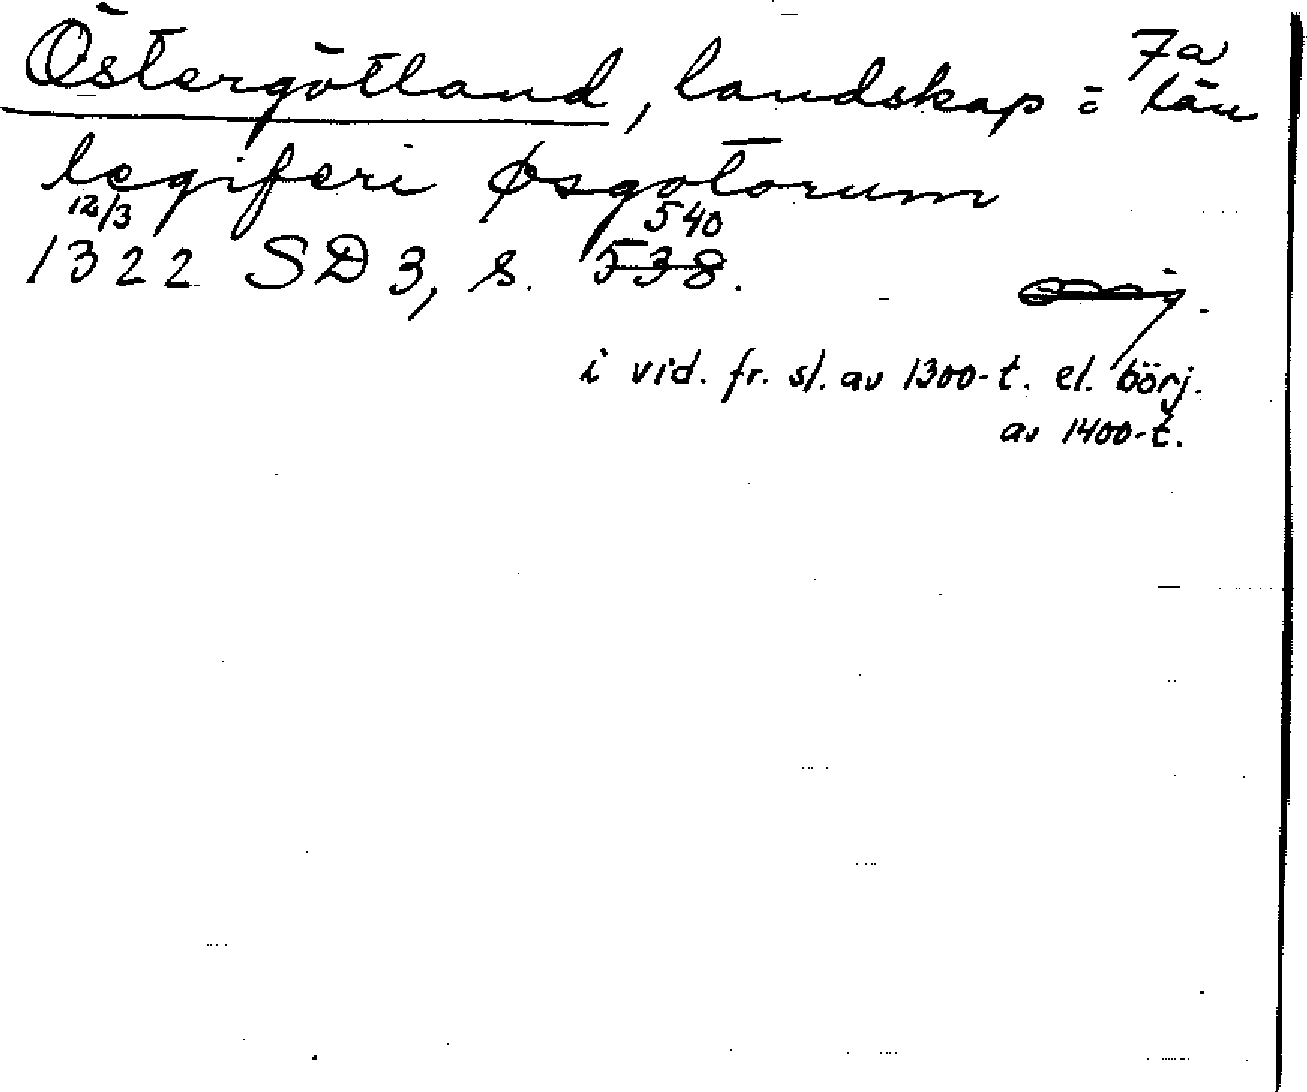 Östergötland, landskap = 7a
län
legiferi øsgotorum
12/3 540
1322 SD 3, s. 538.
i vid. fr. sl. av 1300-t. el. börj.
av 1400-t.